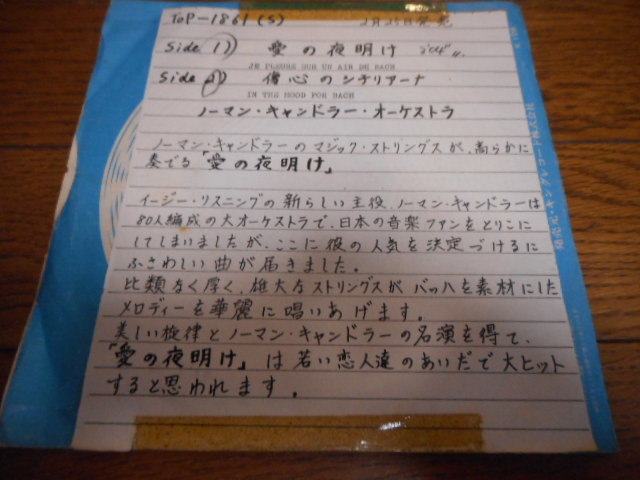 TOP-1861(S) 2月25日発売
Side 1) 愛の夜明け
JE PLEURE SUR UN AIR DE BACH
Side 2) 傷心のシチリアーナ
IN THE MOOD FOR BACH
ノーマン・キャンドラー・オーケストラ
ノーマン・キャンドラーのマジック・ストリングスが、高らかに
奏でる「愛の夜明け」
イージー・リスニングの新らしい主役、ノーマン・キャンドラーは
80人編成の大オーケストラで、日本の音楽ファンをとりこに
してしまいましたが、ここに彼の人気を決定づけるに
ふさわしい曲が届きました。
比類なく厚く、雄大なストリングスがバッハを素材にした
メロディーを華麗に唱いあげます。
美しい旋律とノーマン・キャンドラーの名演を得て、
「愛の夜明け」は若い恋人達のあいだで大ヒット
すると思われます。
発売元・キングレコード株式会社